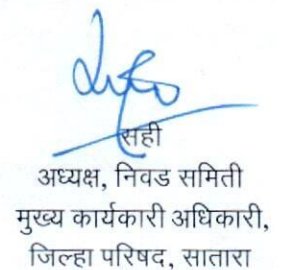 सही
अध्यक्ष, निवड समिती
मुख्य कार्यकारी अधिकारी,
जिल्हा परिषद, सातारा